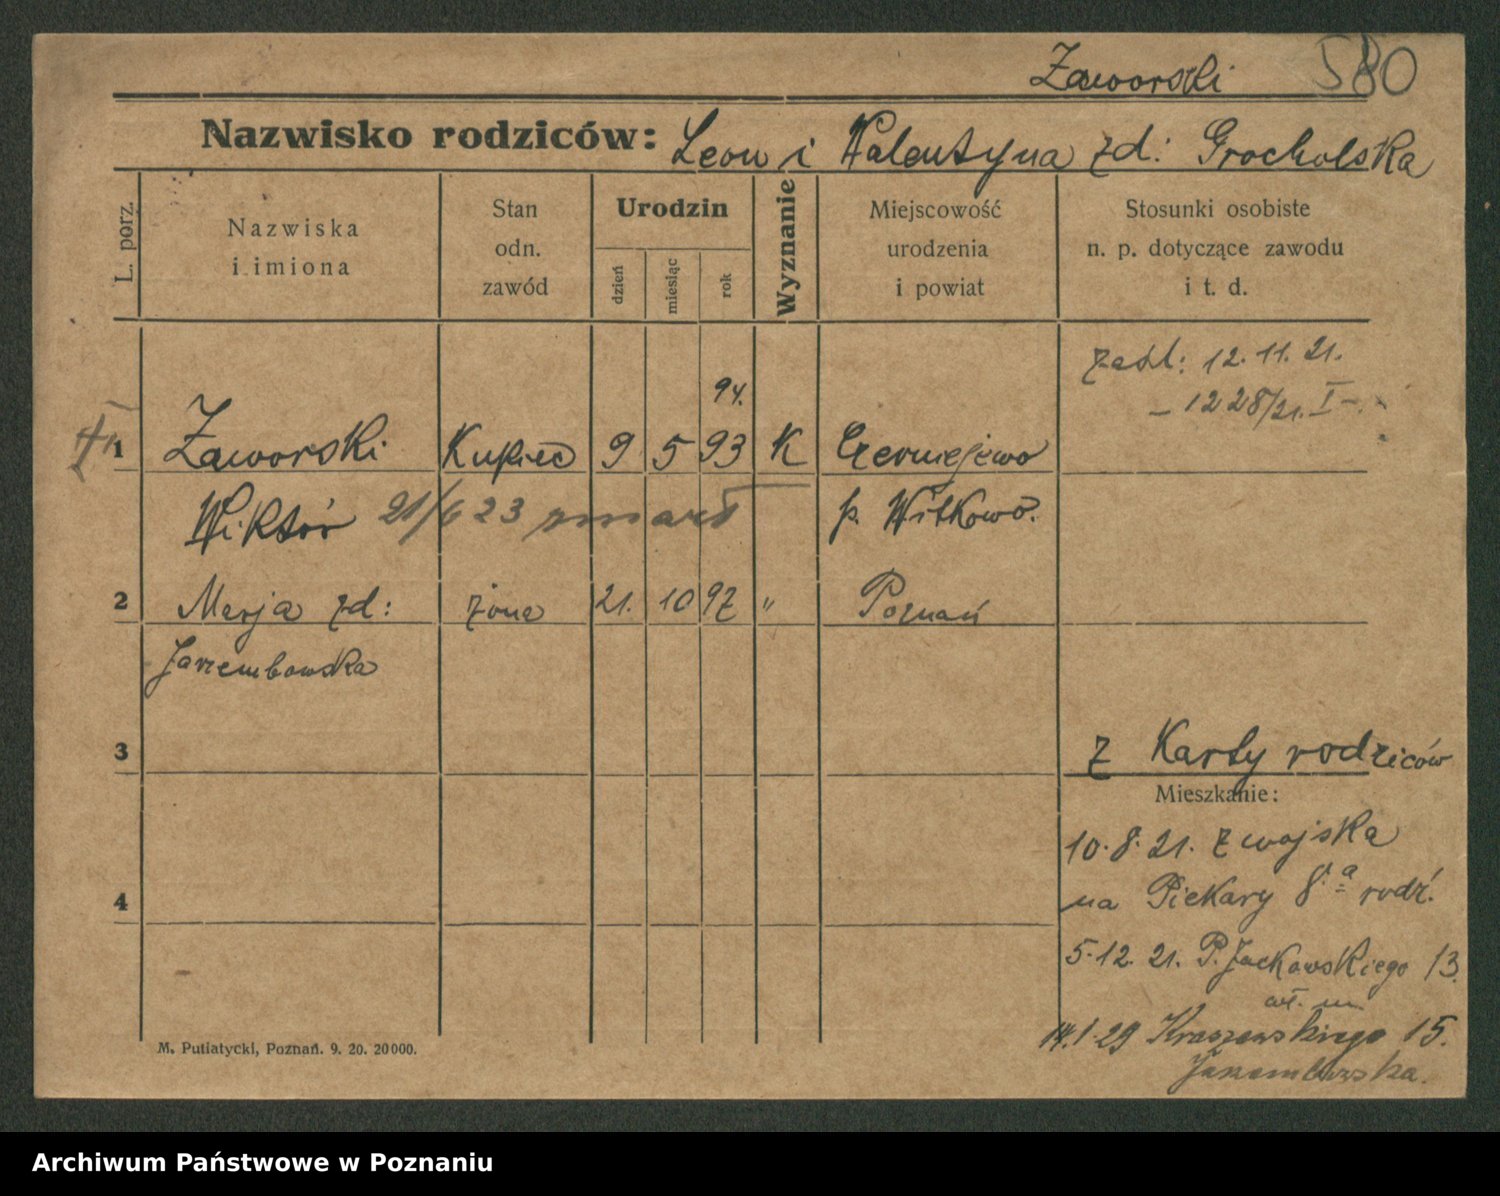 Zaworski 580
Nazwisko rodziców: Leon i Walentyna zd: Grocholska
L. porz.
Nazwiska
i imiona
Stan
odn.
zawód
Urodzin
dzień
miesiąc
rok
Wyznanie
Miejscowość
urodzenia
i powiat
Stosunki osobiste
n. p. dotyczące zawodu
i t. d.
zaśl: 12. 11. 21.
– 1228/21. I –
94.
1 Zaworski Kupiec 9 5 93 K Czerniejewo
Wiktór 21/6 23 zmarł p. Witkowo.
2 Marja zd: żona 21. 10 97 " Poznań
Jarzembowska
3
z Karty rodziców
Mieszkanie:
10. 8. 21. z wojska
na Piekary 8.a rodź.
4
5. 12. 21. P. Jackowskiego 13.
wł. m.
14. 1. 29 Kraszewskiego 15.
Jarzembowska.
M. Putiatycki, Poznań. 9. 20. 20000.
Archiwum Państwowe w Poznaniu